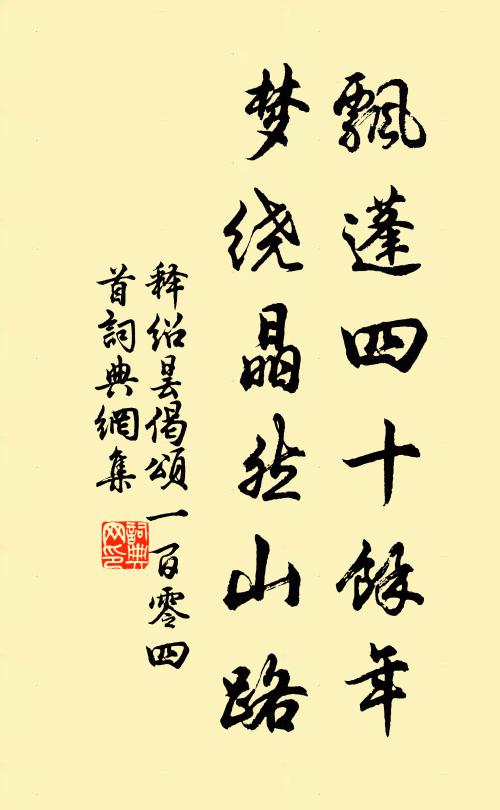 飄蓬四十餘年
梦绕晶然山路
释绍昙偈頌一百零四
首詞典網集
詞典
网印